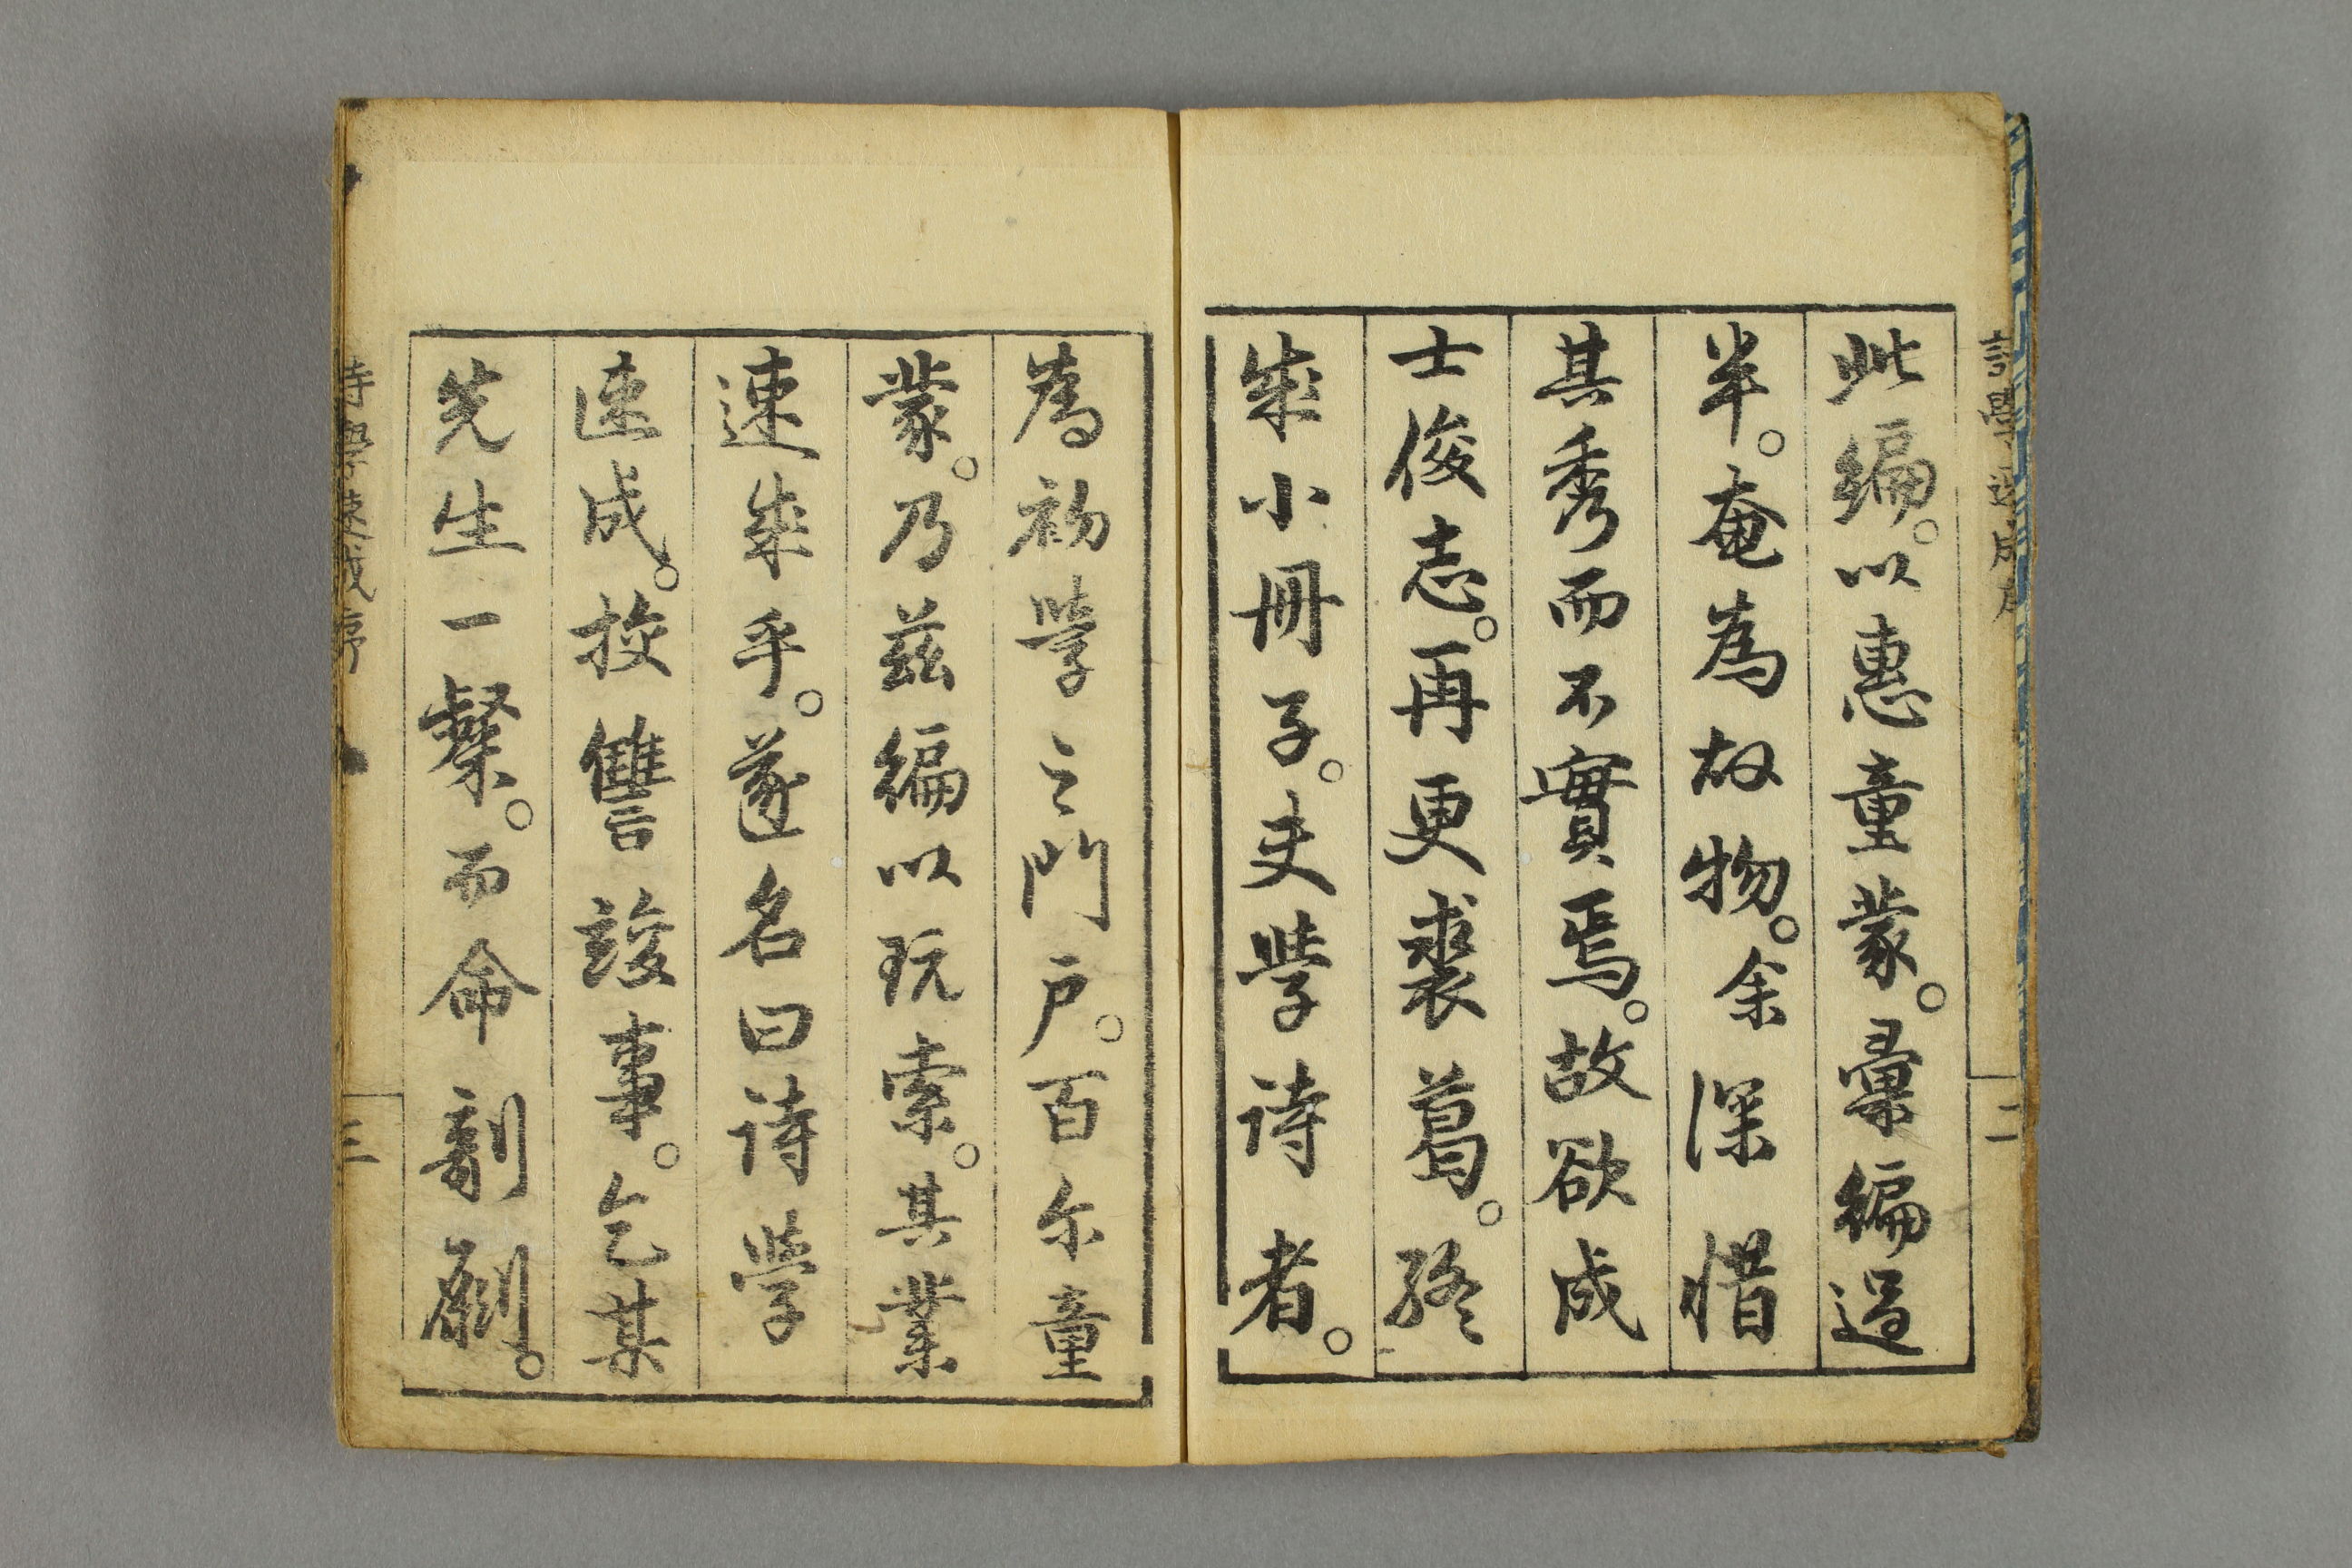 此編。以惠童蒙。彙編過
半。奄為故物。余深惜
其秀而不實焉。故欲成
士俊志。再更裘葛。終
成小冊子。夫學詩者。
詩學速成序
二
為初學之門戶。百尔童
蒙。乃茲編以玩索。其業
速成乎。遂名曰詩學
速成。挍讐竣事。乞某
先生一粲。而命剞劂。
詩學速成序
三